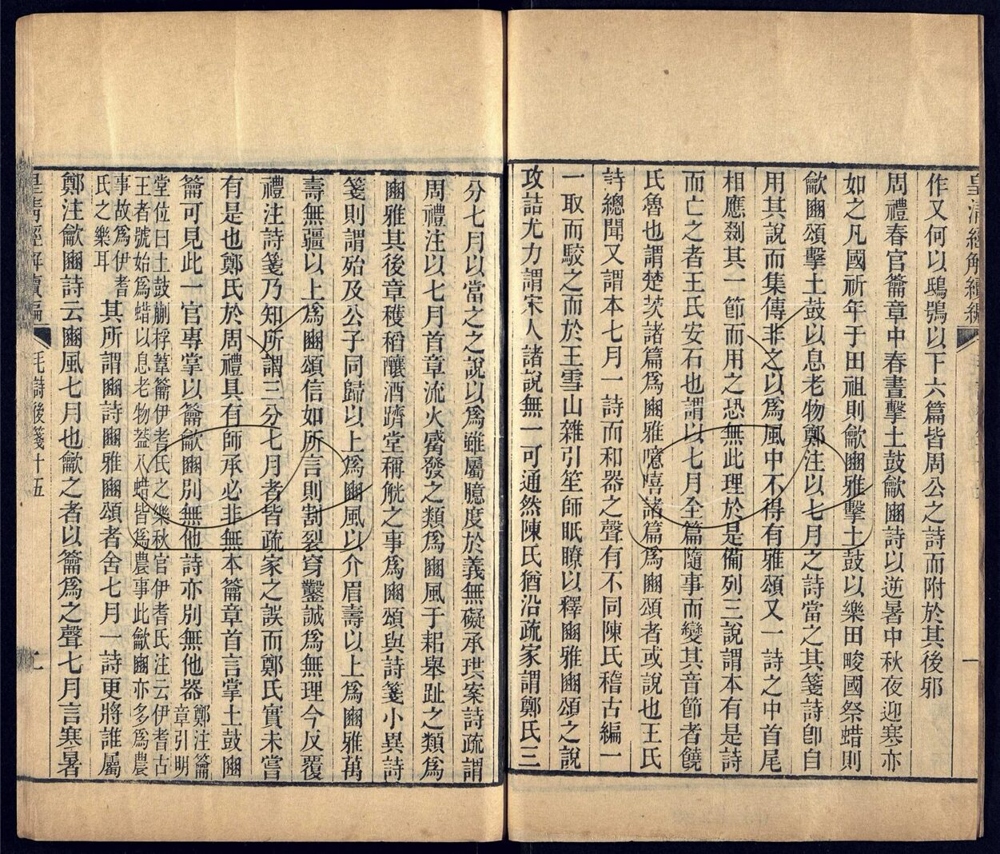 皇清經解續編
一
作又何以鴟鴞以下六篇皆周公之詩而附於其後邪
周禮春官籥章中春晝擊土鼓龡豳詩以逆暑中秋夜迎寒亦
如之凡國祈年于田祖則龡豳雅擊土鼓以樂田畯國祭蜡則
龡豳頌擊土鼓以息老物鄭注以七月之詩當之其箋詩卽自
用其說而集傳非之以爲風中不得有雅頌又一詩之中首尾
相應剟其一節而用之恐無此理於是備列三說謂本有是詩
而亡之者王氏安石也謂以七月全篇隨事而變其音節者饒
氏魯也謂楚茨諸篇爲豳雅噫嘻諸篇爲豳頌者或說也王氏
詩總聞又謂本七月一詩而和器之聲有不同陳氏稽古編一
一取而駮之而於王雪山雜引笙師眡瞭以釋豳雅豳頌之說
攻詰尤力謂宋人諸說無一可通然陳氏猶沿疏家謂鄭氏三
分七月以當之之說以爲雖屬臆度於義無礙承珙案詩疏謂
周禮注以七月首章流火觱發之類爲豳風于耜舉趾之類爲
豳雅其後章穫稻釀酒躋堂稱觥之事爲豳頌與詩箋小異詩
箋則謂殆及公子同歸以上爲豳風以介眉壽以上爲豳雅萬
壽無疆以上爲豳頌信如所言則割裂穿鑿誠爲無理今反覆
禮注詩箋乃知所謂三分七月者皆疏家之誤而鄭氏實未嘗
有是也鄭氏於周禮具有師承必非無本籥章首言掌土鼓豳
籥可見此一官專掌以籥龡豳別無他詩亦別無他器鄭注籥章引明
堂位曰土鼓蒯桴葦籥伊耆氏之樂秋官伊耆氏注云伊耆古
王者號始爲蜡以息老物葢八蜡皆爲農事此龡豳亦多爲農
事故爲伊耆氏之樂耳其所謂豳詩豳雅豳頌者舍七月一詩更將誰屬
鄭注龡豳詩云豳風七月也龡之者以籥爲之聲七月言寒暑
皇清經解續編
毛詩後箋十五